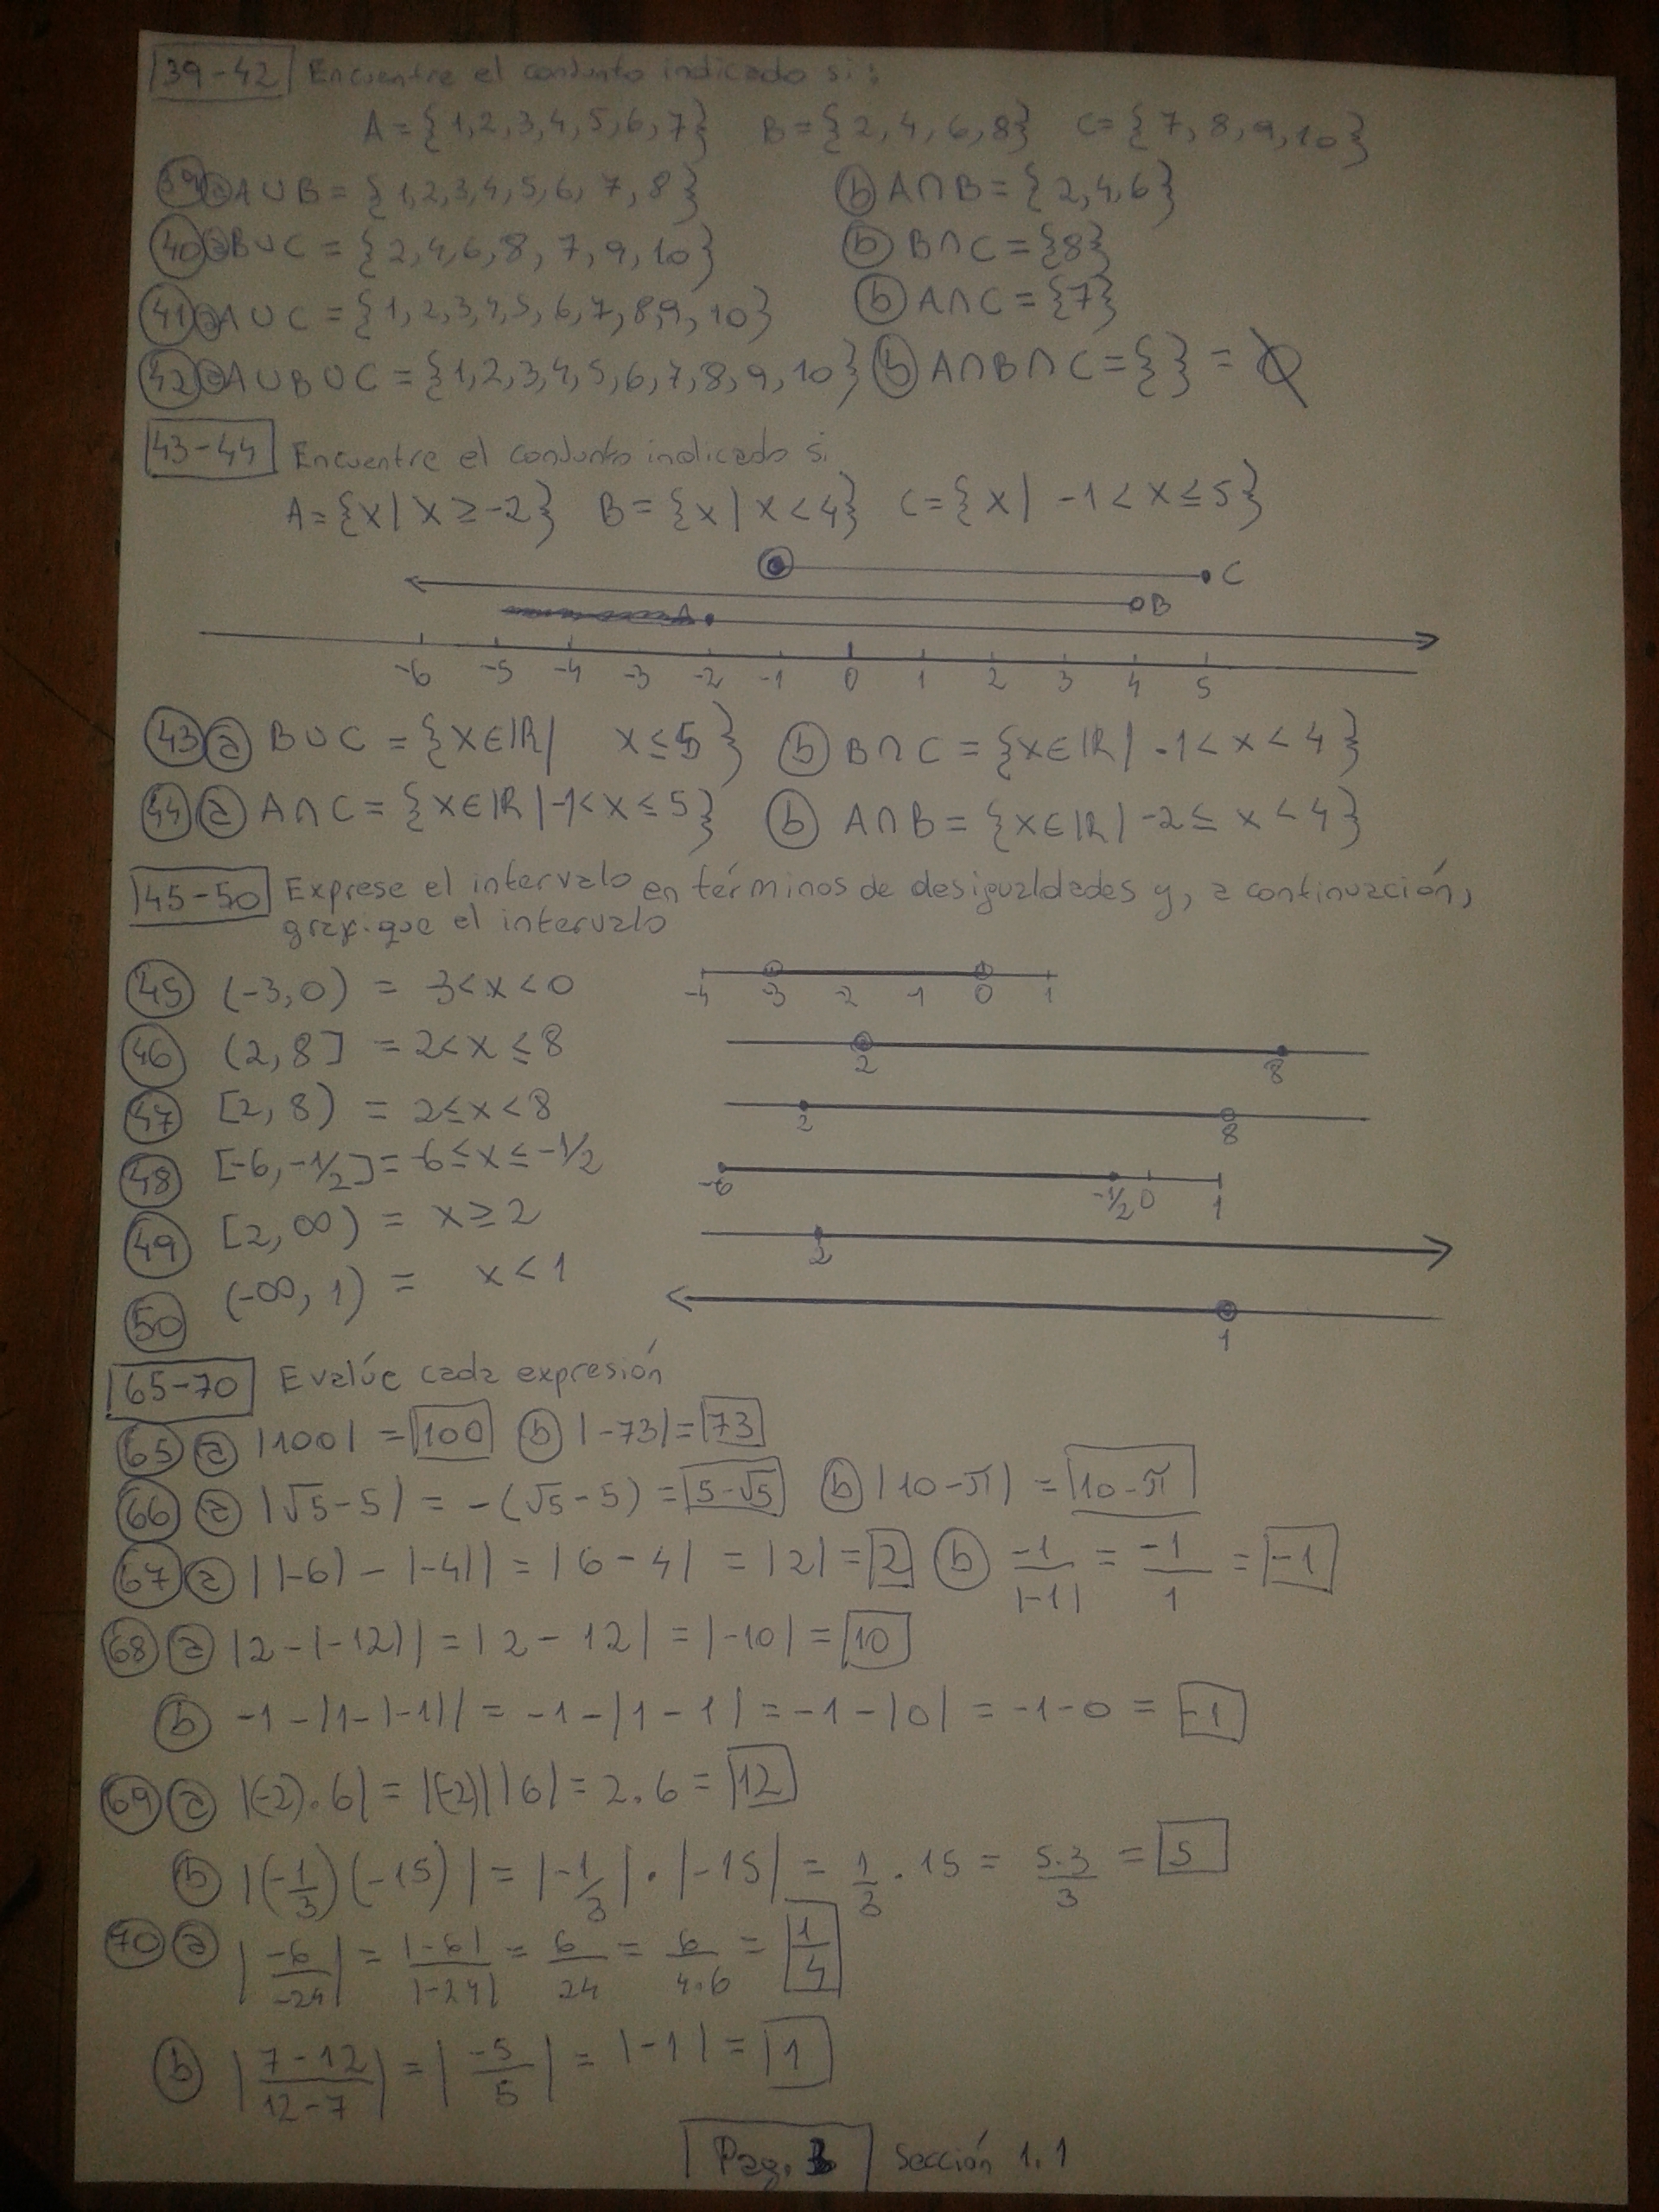 39-42 Encuentre el conjunto indicado si:
A={1,2,3,4,5,6,7} B={2,4,6,8} C={7,8,9,10}
39 a A∪B={1,2,3,4,5,6,7,8} b A∩B={2,4,6}
40 a B∪C={2,4,6,8,7,9,10} b B∩C={8}
41 a A∪C={1,2,3,4,5,6,7,8,9,10} b A∩C={7}
42 a A∪B∪C={1,2,3,4,5,6,7,8,9,10} b A∩B∩C={ } = ∅
43-44 Encuentre el conjunto indicado si
A={x| x≥-2} B={x| x<4} C={x| -1<x≤5}
C
B
A
-6 -5 -4 -3 -2 -1 0 1 2 3 4 5
43 a B∪C={x∈ℝ| x≤5} b B∩C={x∈ℝ| -1<x<4}
44 a A∩C={x∈ℝ| -1<x≤5} b A∩B={x∈ℝ| -2≤x<4}
45-50 Exprese el intervalo en términos de desigualdades y, a continuación,
grafique el intervalo
45 (-3,0) = -3<x<0 -4 -3 -2 -1 0 1
46 (2,8] = 2<x≤8 2 8
47 [2,8) = 2≤x<8 2 8
48 [-6,-1/2] = -6≤x≤-1/2 -6 -1/2 0 1
49 [2,∞) = x≥2 2
50 (-∞,1) = x<1 1
65-70 Evalúe cada expresión
65 a |100| = 100 b |-73| = 73
66 a |√5-5| = -(√5-5) = 5-√5 b |10-π| = 10-π
67 a ||-6|-|-4|| = |6-4| = |2| = 2 b -1/|-1| = -1/1 = -1
68 a |2-|-12|| = |2-12| = |-10| = 10
b -1-|1-|-1|| = -1-|1-1| = -1-|0| = -1-0 = -1
69 a |(-2)·6| = |(-2)||6| = 2·6 = 12
b |(-1/3)(-15)| = |-1/3|·|-15| = 1/3·15 = 5·3/3 = 5
70 a |-6/-24| = |-6|/|-24| = 6/24 = 6/4·6 = 1/4
b |7-12/12-7| = |-5/5| = |-1| = 1
Pag. 3 Sección 1.1